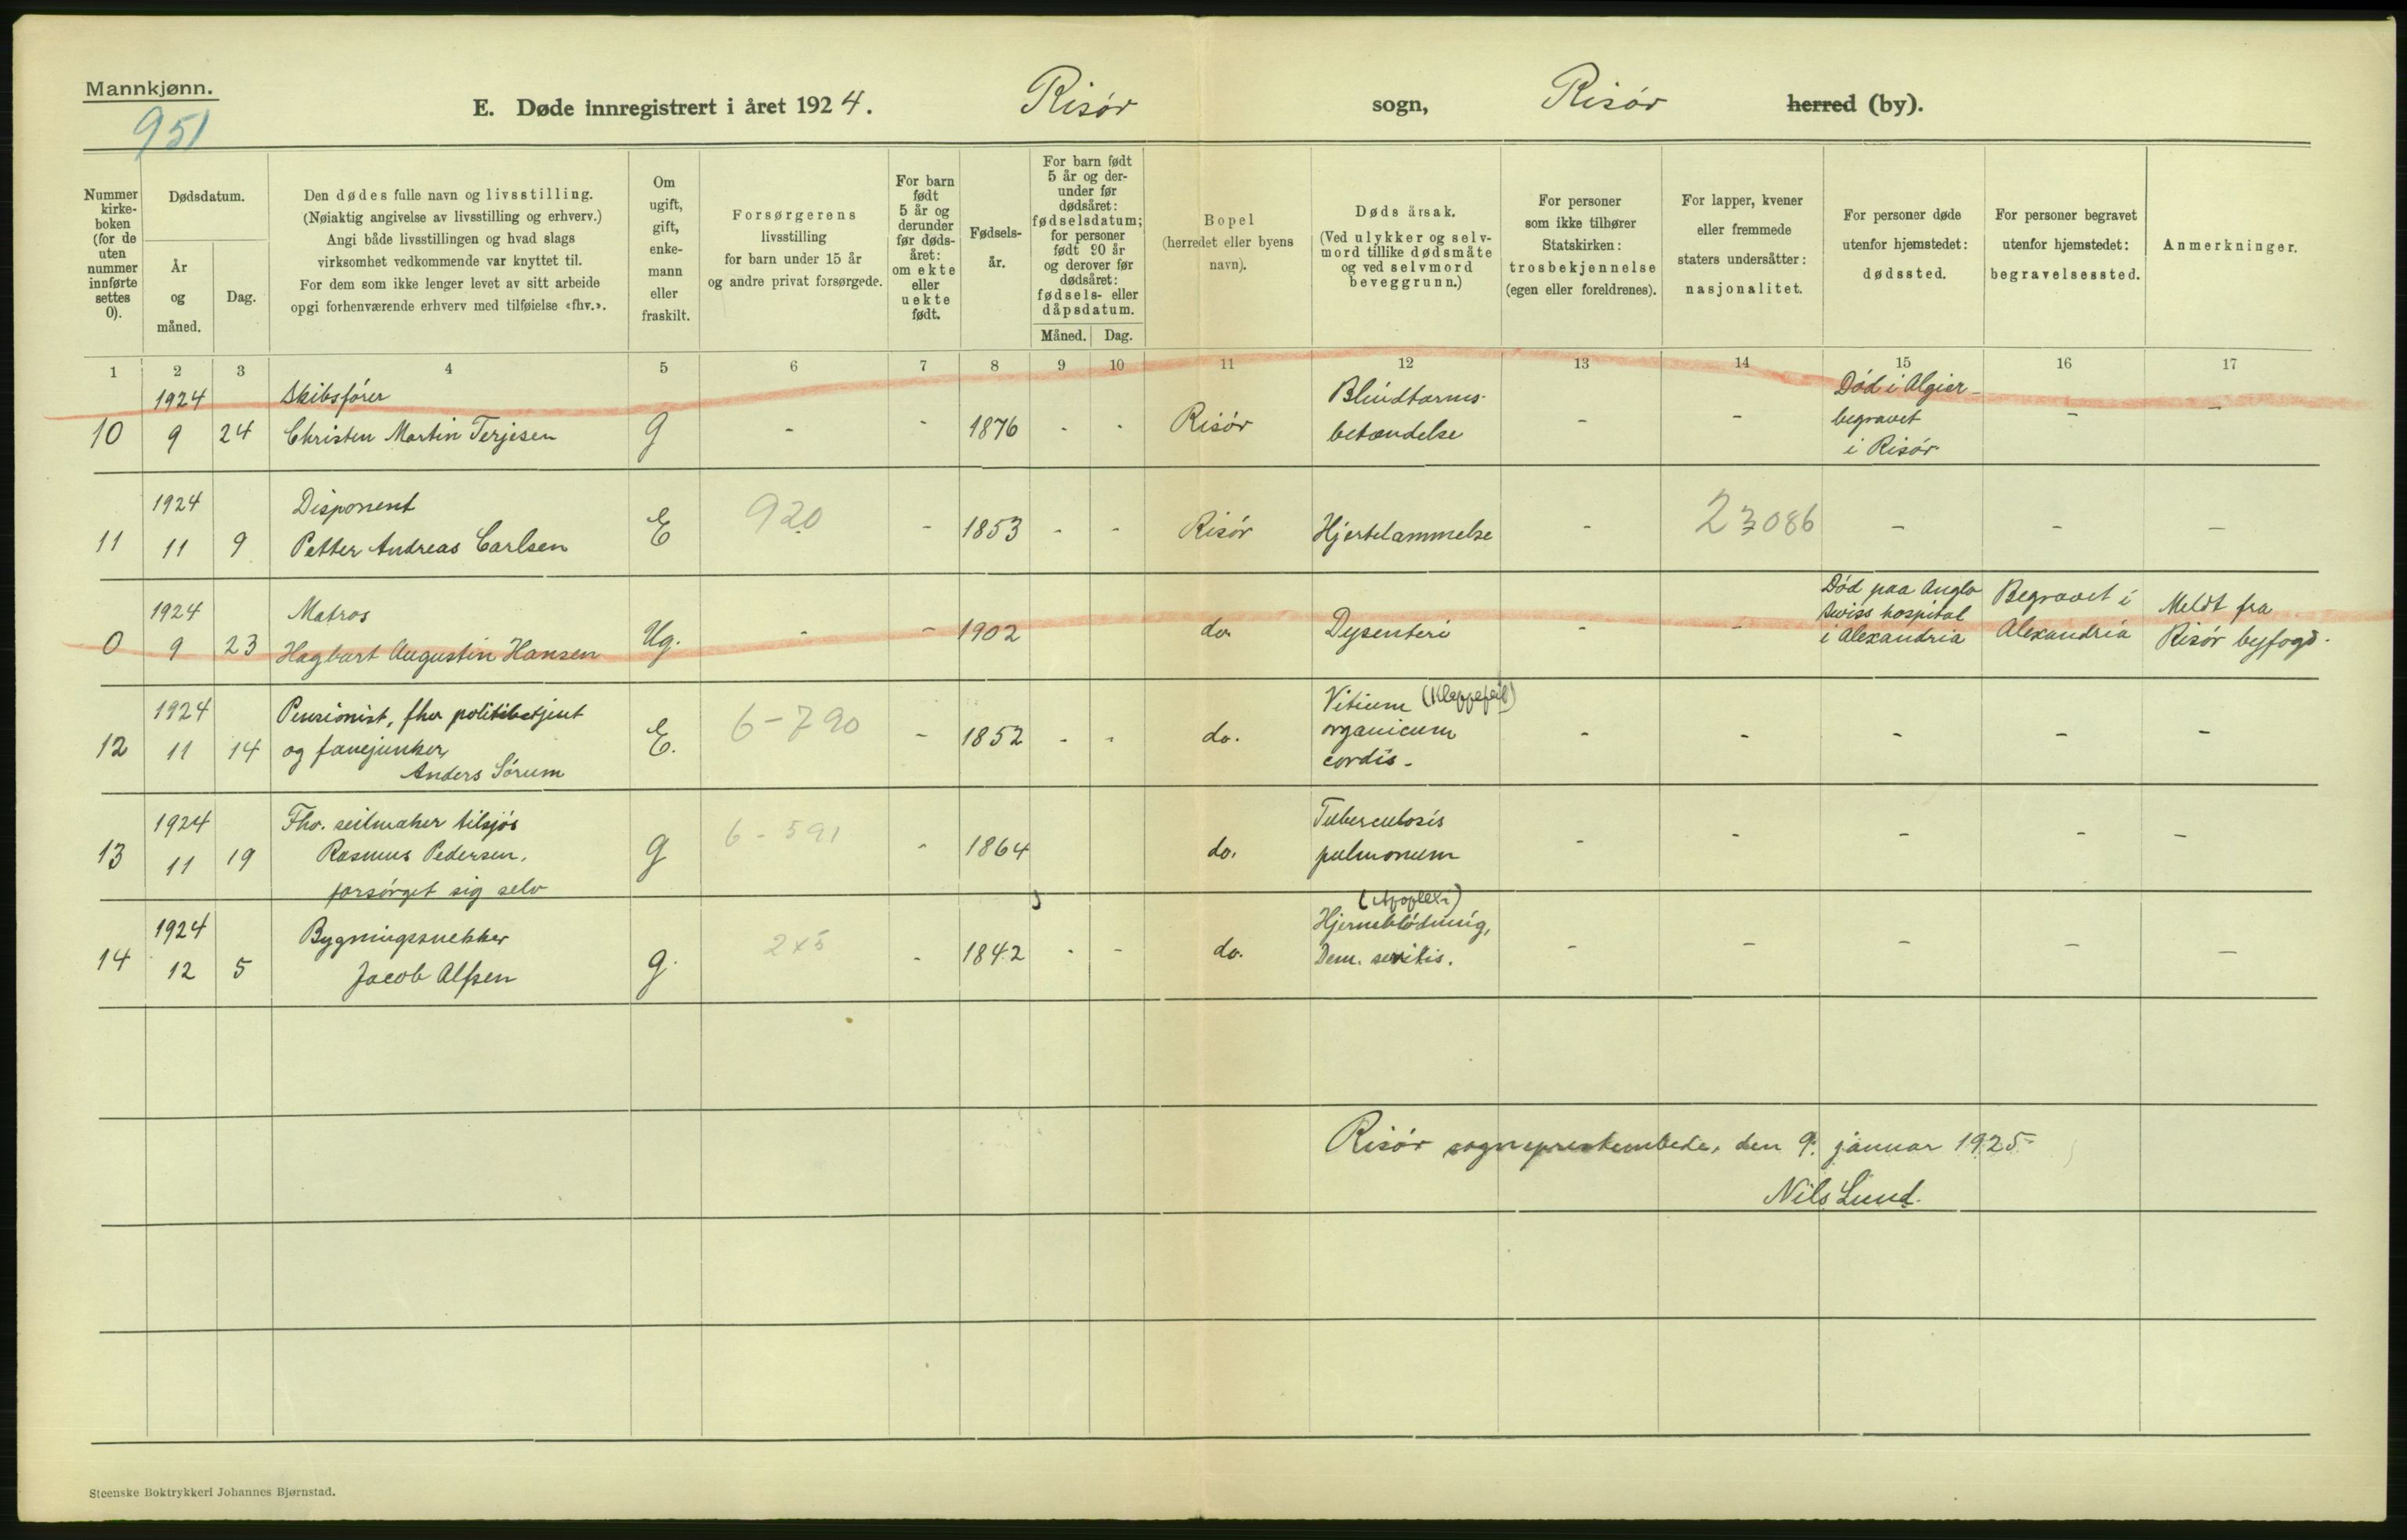 Mannkjønn.
951
E. Døde innregistrert i året 1924. Risör sogn, Risör herred (by).
Nummer kirke-boken (for de uten nummer innførte settes 0).
Dødsdatum.
År og måned.
Dag.
Den dødes fulle navn og livsstilling.
(Nøiaktig angivelse av livsstilling og erhverv.)
Angi både livsstillingen og hvad slags
virksomhet vedkommende var knyttet til.
For dem som ikke lenger levet av sitt arbeide
opgi forhenværende erhverv med tilføielse «fhv.».
Om ugift, gift, enke-mann eller fraskilt.
Forsørgerens
livsstilling
for barn under 15 år
og andre privat forsørgede.
For barn født 5 år og derunder før døds-året: om ekte eller uekte født.
Fødsels-år.
For barn født 5 år og der-under før dødsåret: fødselsdatum; for personer født 90 år og derover før dødsåret: fødsels- eller dåpsdatum.
Måned. Dag.
Bopel
(herredet eller byens
navn).
Dødsårsak.
(Ved ulykker og selv-
mord tillike dødsmåte
og ved selvmord
beveggrunn.)
For personer
som ikke tilhører
Statskirken:
trosbekjennelse
(egen eller foreldrenes).
For lapper, kvener
eller fremmede
staters undersåtter:
nasjonalitet.
For personer døde
utenfor hjemstedet:
dødssted.
For personer begravet
utenfor hjemstedet:
begravelsessted.
Anmerkninger.
1 2 3 4 5 6 7 8 9 10 11 12 13 14 15 16 17
1924 Skibsförer Blindtarms- Död i Algier-
10 9 24 Christen Martin Terjesen g - - 1876 - - Risör betændelse - - begravet - -
i Risör
1924 Disponent 920 23086
11 11 9 Petter Andreas Carlsen E - 1853 - - Risör Hjertelammelse - - - -
1924 Matros Död paa Anglo Begravet i Meldt fra
Swiss hospital
0 9 23 Hagbart Augustin Hansen Ug. - - 1902 do. Dysenteri - - i Alexandria Alexandria Risör byfogd.
1924 Pensionist, fhv politibetjent 6-790 Vitium (Klappefeil)
12 11 14 og fanejunker, E. - 1852 - - do. organicum - - - - -
Anders Sörum cordis.
1924 Fhv. seilmaker tilsjös 6-591 Tuberculosis
13 11 19 Rasmus Pedersen, g - 1864 do. pulmonum - - - - -
forsörget sig selv
(Apoplexi)
1924 Bygningssnekker 2x5 Hjerneblödning,
14 12 5 Jacob Alfsen g. - 1842 - - do. Dem. senilis. - - - - -
Risör sogneprestembede, den 9. januar 1925
Nils Lund.
Steenske Boktrykkeri Johannes Bjørnstad.